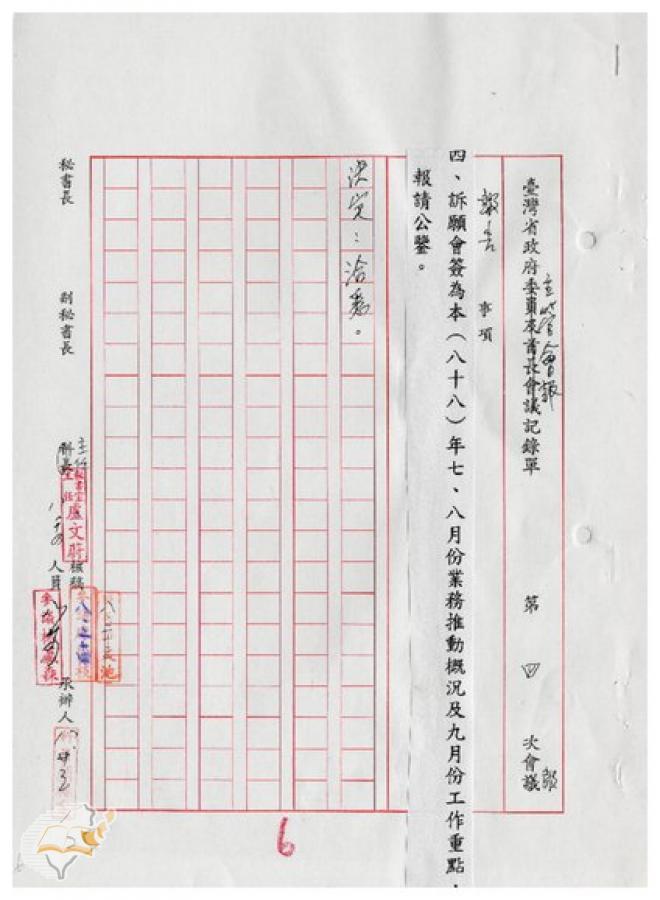 臺灣省政府委員 首長會議記錄單 第 四 次會議
主管會報
報告 事項
四、訴願會簽為本（八十八）年七、八月份業務推動概況及九月份工作重點，
報請公鑒。
決定：洽悉。
秘書長 副秘書長 主任 盧文蔚 核稿人員 承辦人
6